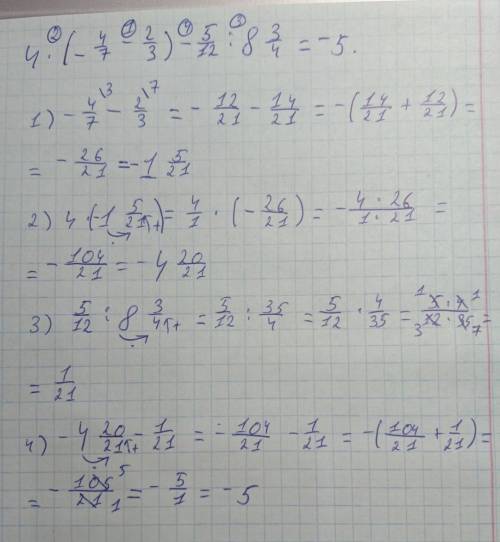 4 · (- 4/7 - 2/3) - 5/12 : 8 3/4 = -5.
1) - 4/7 \3 - 2/3 \7 = - 12/21 - 14/21 = -(14/21 + 12/21) =
= - 26/21 = -1 5/21
2) 4 · (-1 5/21) = 4/1 · (- 26/21) = - 4 · 26/1 · 21 =
= - 104/21 = -4 20/21
3) 5/12 : 8 3/4 = 5/12 : 35/4 = 5/12 · 4/35 = 5 · 4/12 · 35 =
= 1/21
4) -4 20/21 - 1/21 = - 104/21 - 1/21 = -(104/21 + 1/21) =
= - 105/21 = - 5/1 = -5